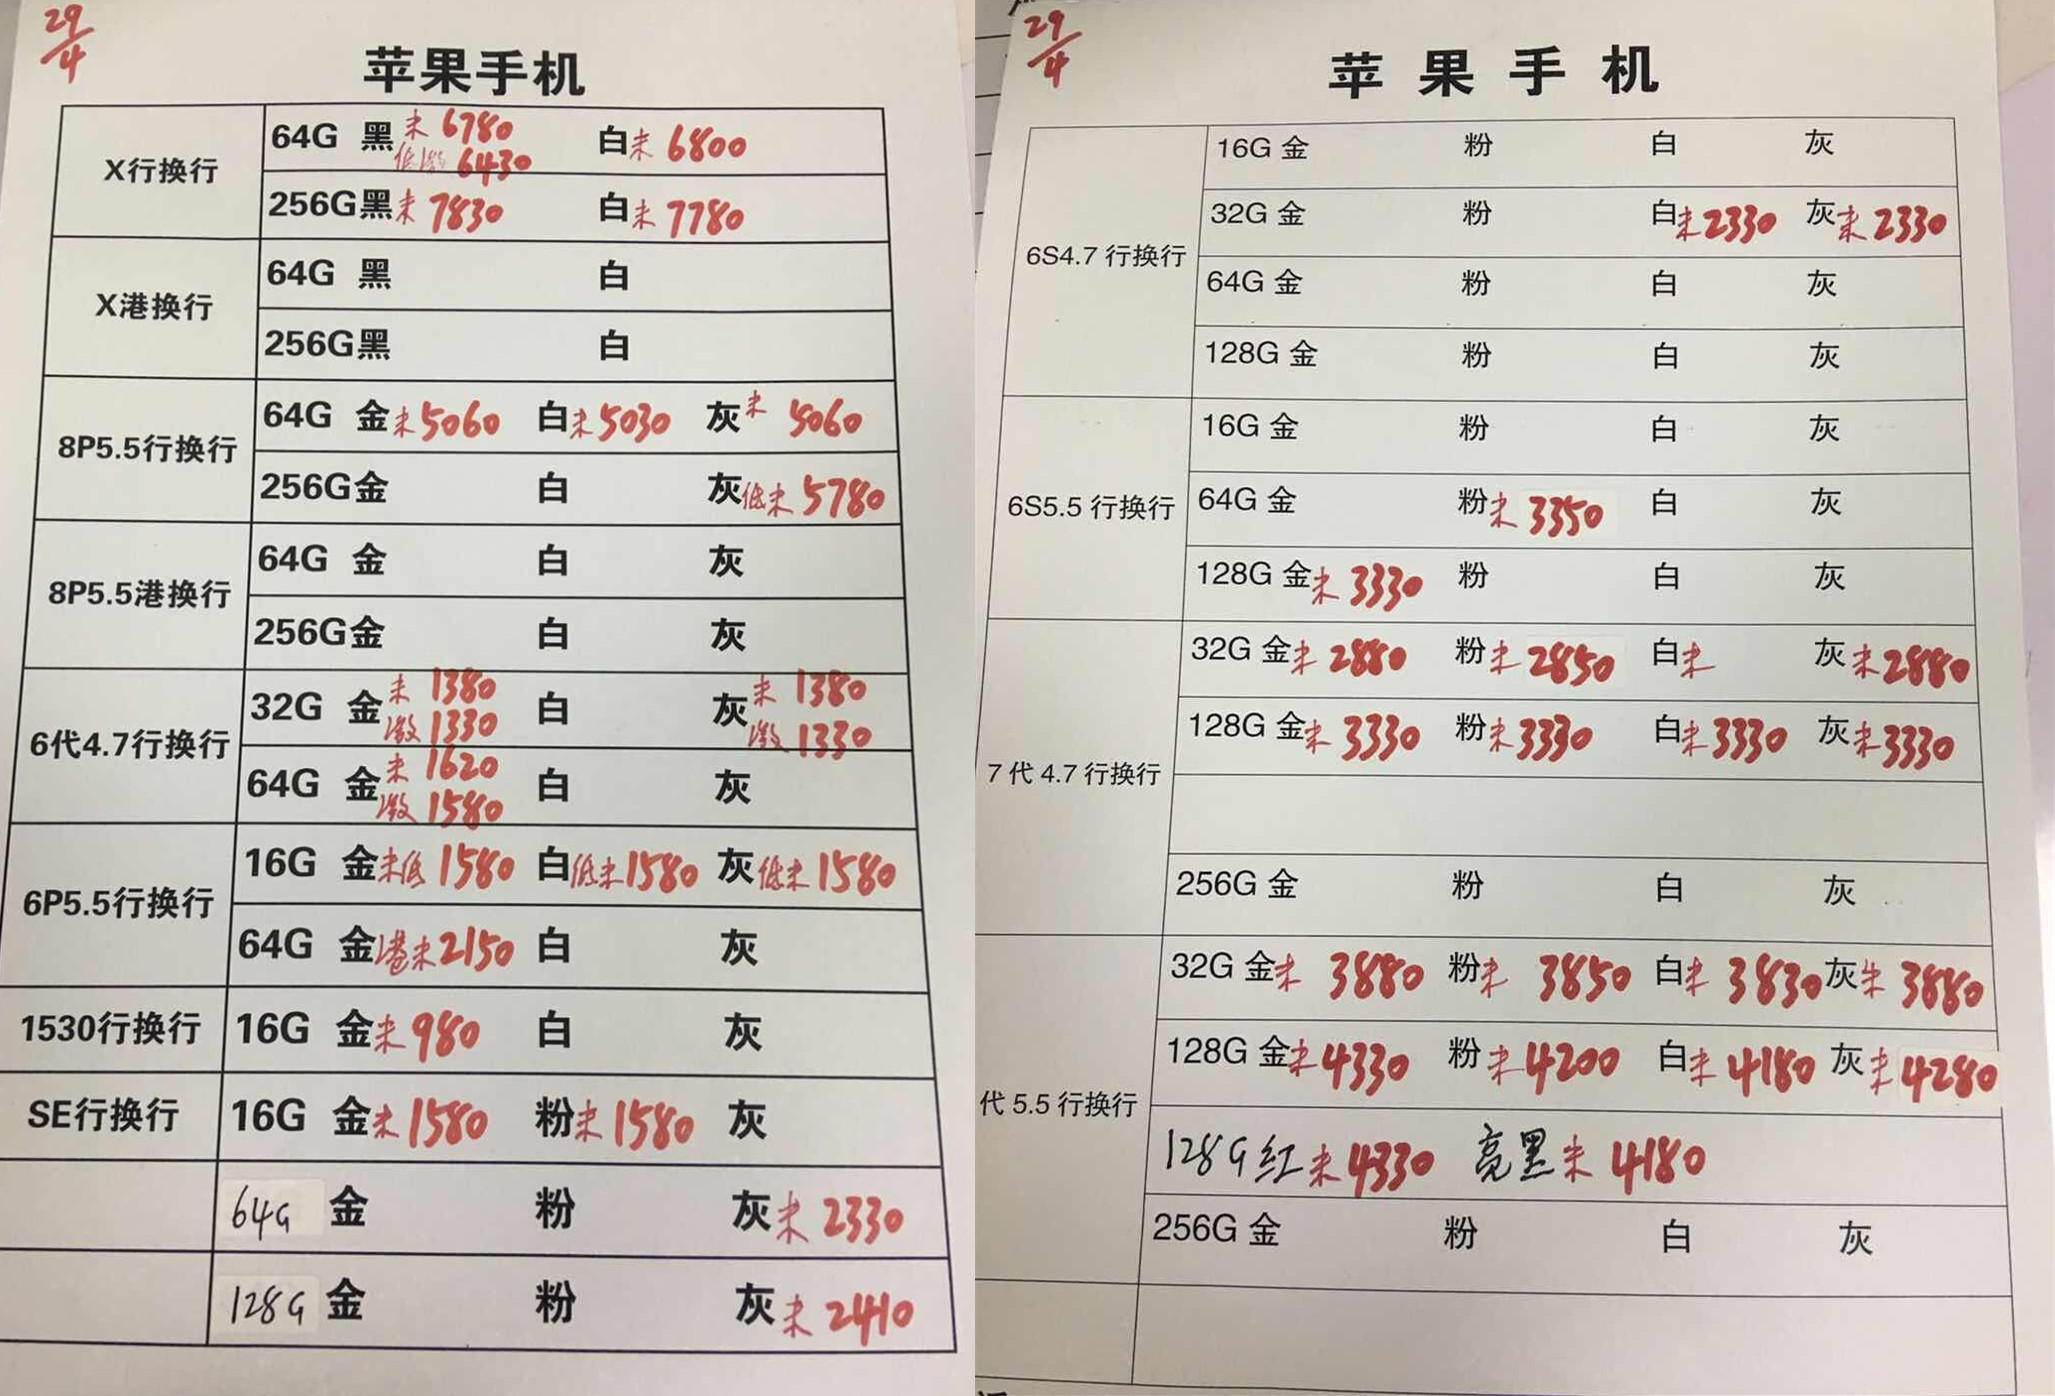 29/4
苹果手机
X行换行
64G 黑未6780 低激6430 白未6800
256G黑未7830 白未7780
X港换行
64G 黑 白
256G黑 白
8P5.5行换行
64G 金未5060 白未5030 灰未5060
256G金 白 灰低未5780
8P5.5港换行
64G 金 白 灰
256G金 白 灰
6代4.7行换行
32G 金未1380 激1330 白 灰未1380 激1330
64G 金未1620 激1580 白 灰
6P5.5行换行
16G 金未低1580 白低未1580 灰低未1580
64G 金港未2150 白 灰
1530行换行 16G 金未980 白 灰
SE行换行 16G 金未1580 粉未1580 灰
64G 金 粉 灰未2330
128G 金 粉 灰未2410
29/4
苹果手机
6S4.7行换行
16G 金 粉 白 灰
32G 金 粉 白未2330 灰未2330
64G 金 粉 白 灰
128G 金 粉 白 灰
6S5.5行换行
16G 金 粉 白 灰
64G 金 粉未3350 白 灰
128G 金未3330 粉 白 灰
7代4.7行换行
32G 金未2880 粉未2850 白未 灰未2880
128G 金未3330 粉未3330 白未3330 灰未3330
256G 金 粉 白 灰
代5.5行换行
32G 金未3880 粉未3850 白未3830 灰未3880
128G 金未4330 粉未4200 白未4180 灰未4280
128G红未4330 亮黑未4180
256G 金 粉 白 灰